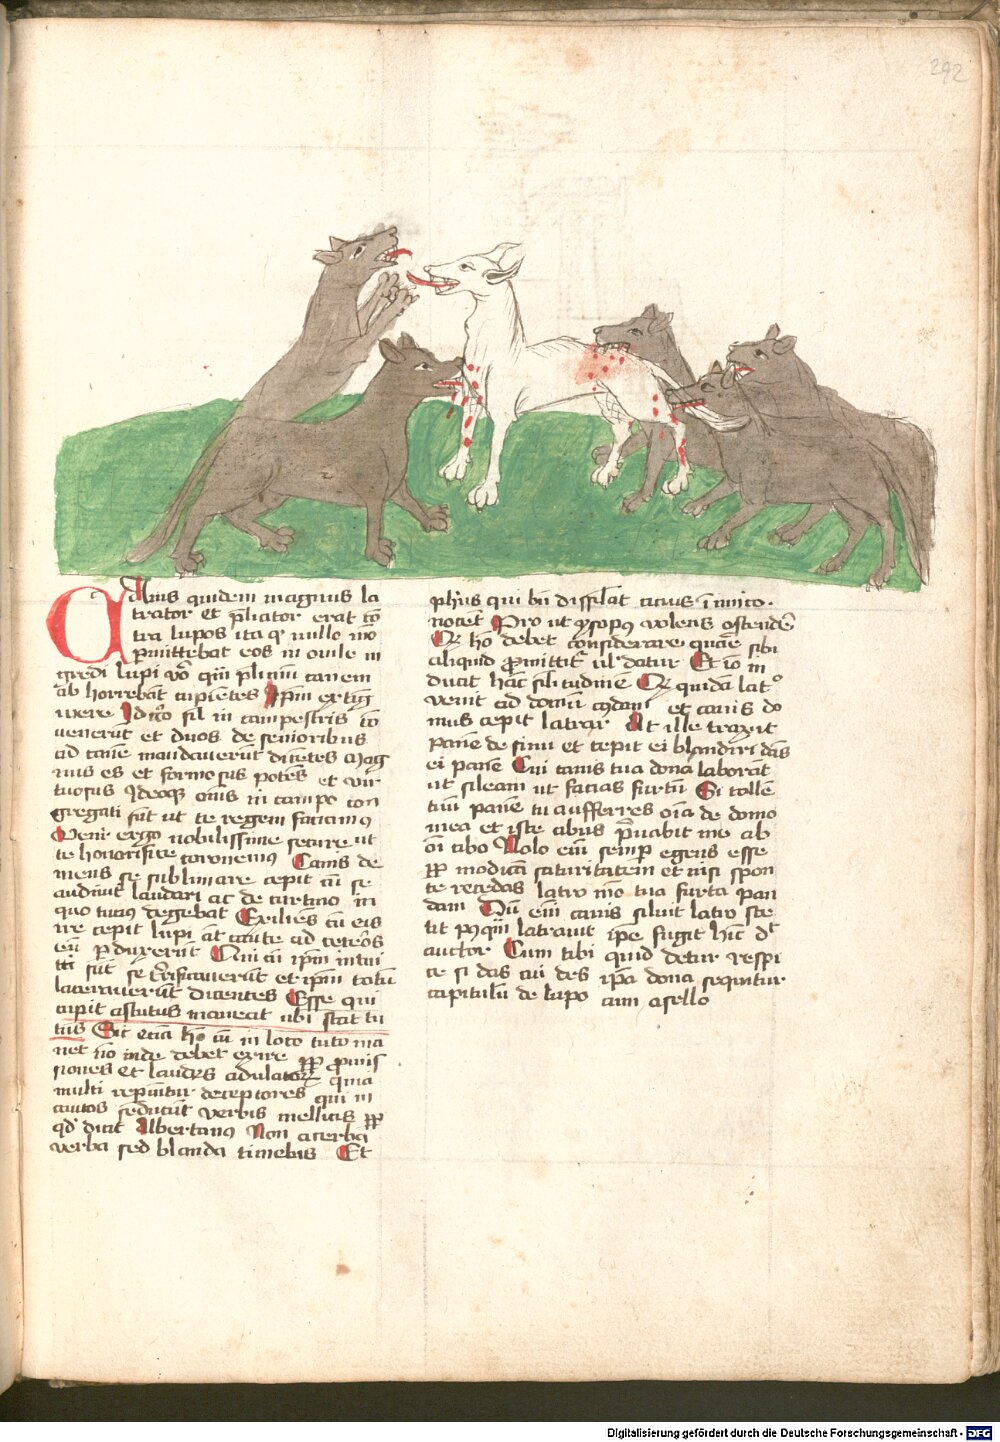 292
Canis quidem magnus la
trator et p̄liator erat cō
tra lupos ita qͥ nullo mō
p̱mittebat eos in ovile in
gredi lupi vō qm̄ pl̄imū canem
ab horrebāt cupientes Ip̄m extīg
were Idcō sil̄ in campestris cō
venerūt et duos de senioribus
ad canē mandaverūt dicētes Mag
nus es et formosus potēs et vir
tuosus Ideoqꝫ oīs in campo con
gregati sūt ut te regem faciamꝰ
Veni ergo nobilissime secure ut
te honorifice coronemꝰ Canis de
mens se sublimare cepit cū se
audivit laudari ac de curtino in
quo tutus degebat Exiliēs cū eis
ire cepit lupi āt caute ad ceteros
eū p̱duxerūt Qui cū ip̄m intui
ti sūt se
et ip̄m totū
laceraverūt dicentes Esse qui
cupit astutus maneat ubi stat tu
tus Sic eciā hō cū in loco tuto ma
net nō inde debet exire ꝓp̱ promis
siones et laudes adulatoꝝ quia
multi repiūtur deceptores qui in
cautos seducūt verbis mellitis ꝓp̱
qd̄ dicit Albertanꝰ Non acerba
verba sed blanda timebis Et
phus qui bn̄ dissil̄at cicius īimico
nocet Pro ut ysopus volens ostendē
Qꝫ hō debet considerare quāe sibi
aliquid promittitur vel datur Et iō in
ducit hāc sil̄itudinē Qꝫ quidā latͦ
venit ad domū cuidam et canis do
mus cepit latrar At ille traxit
panē de sinu et cepit ei blandiri dās
ei panē Cui canis tua dona laborāt
ut sileam ut facias furtū Si tolle
tuū panē tu aufferres oīa de domo
mea et iste cibus p̄vabit me ab
oī cibo Nolo eiū semp̱ egens esse
ꝓp̱ modicā saturitatem et nisi spon
te recedas latro mō tua furta pan
dam Dū eiū canis siluit latro ste
tit pꝰqm̄ latravit ip̄e fugit hīc dt
auctor Cum tibi quid detur respi
ce si das cui des ip̄a dona sequitur
capitulū de lupo cum asello
Digitalisierung gefördert durch die Deutsche Forschungsgemeinschaft - DFG